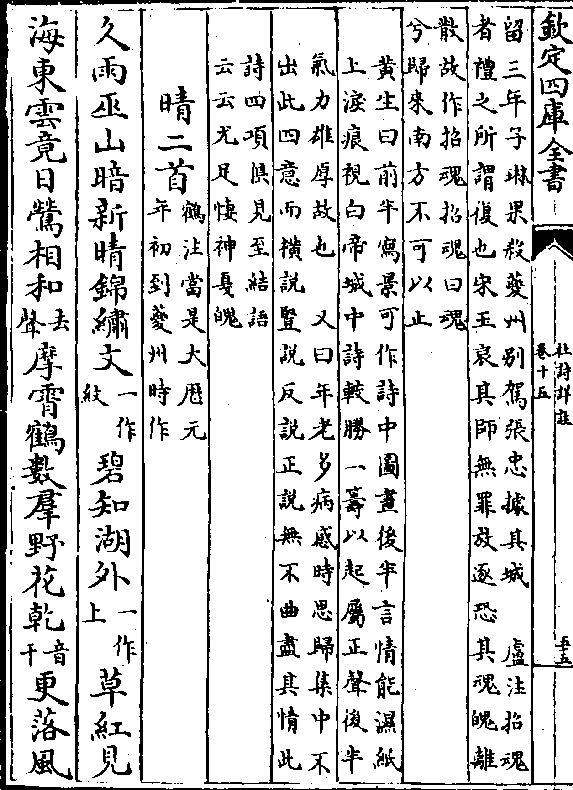 欽定四庫全書
杜詩詳註
卷十五
留三年子琳果殺夔州别駕張忠據其城　盧注招魂
者禮之所謂復也宋玉哀其師無罪放逐恐其魂魄離
散故作招魂招魂曰魂
兮歸來南方不可以止
黄生曰前半寫景可作詩中圖畫後半言情能濕紙
上淚痕視白帝城中詩較勝一籌以起屬正聲後半
氣力雄厚故也　又曰年老多病感時思歸集中不
出此四意而横説豎説反説正説無不曲盡其情此
詩四項俱見至結語
云云尤足悽神戞魄
晴二首鶴注當是大厯元年初到夔州時作
久雨巫山暗新晴錦繡文一作紋碧知湖外一作上草紅見
海東雲竟日鶯相和去聲摩霄鶴數羣野花乾音干更落風